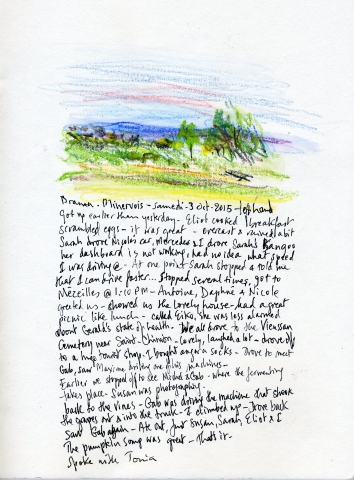 Dranan - Minervois - samedi - 3 Oct - 2015 - left hand
got up earlier than yesterday. Eliot cooked breakfast
scrambled eggs - it was great - overcast & rained a bit
Sarah drove Nicola's car, Mercedes & I drove Sarah's Kangoo
her dashboard is not working, had no idea what speed
I was driving @ - At one point Sarah stopped & told me
that I can drive faster... Stopped several times, got to
Mézeilles @ 1:10 PM - Antoine, Daphné & Nicole
greeted us - showed us the lovely house - had a great
picnic like lunch - called Eiko, she was less alarmed
about Gerald's state of health. We all drove to the Vieussan
Cemetery near Saint-Chinian - Lovely, laughed a lot - drove off
to a huge shop. I bought socks - Drove to meet
Gab, saw Maxime driving one of his machines -
Earlier we stopped off to see Michel & Gab - where the fermenting
takes place - Susan was photographing.
back to the vines - Gab was driving the machine that shook
the grapes out & into the truck - I climbed up - Drove back
saw Gab again - Ate out, just Susan, Sarah, Eliot & I
The pumpkin soup was great - that's it.
Spoke with Tonia